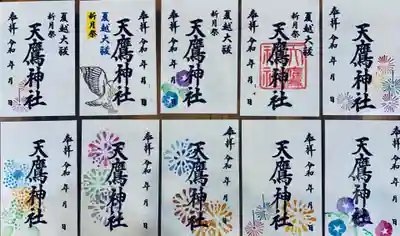 夏越大祓
新月祭
奉拝
天鷹神社
令和 年 月 日
夏越大祓
新月祭
奉拝
天鷹神社
令和 年 月 日
夏越大祓
新月祭
奉拝
天鷹神社
令和 年 月 日
夏越大祓
新月祭
奉拝
天鷹神社
令和 年 月 日
夏越大祓
新月祭
奉拝
天鷹神社
令和 年 月 日
奉拝
天鷹神社
令和 年 月 日
奉拝
天鷹神社
令和 年 月 日
奉拝
天鷹神社
令和 年 月 日
奉拝
天鷹神社
令和 年 月 日
奉拝
天鷹神社
令和 年 月 日